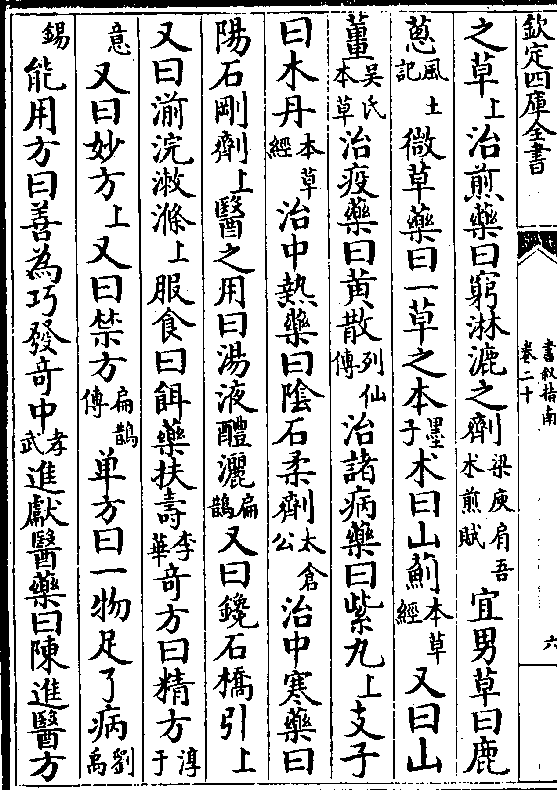 欽定四庫全書
書叙指南
卷二十
六
之草上治煎藥曰窮淋漉之劑梁庾肩吾水煎賦宜男草曰鹿
葱風土記微草藥曰一草之本墨子术曰山薊本草經又曰山
薑吳氏本草治疫藥曰黄散列仙傳治諸病藥曰紫九上支子
曰木丹本草經治中熱藥曰陰石柔劑太倉公治中寒藥曰
陽石剛劑上醫之用曰湯液醴灑扁鵲又曰鑱石橋引上
又曰湔浣潄滌上服食曰餌藥扶壽李華奇方曰精方淳于
意又曰妙方上又曰禁方扁鵲傳单方曰一物足了病劉禹
錫能用方曰善為巧發奇中孝武進獻醫藥曰陳進醫方